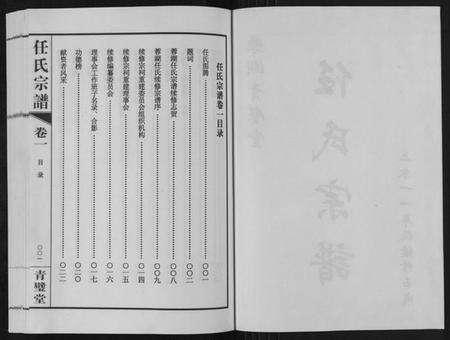 任氏宗譜
任氏宗譜卷一目录
任氏图腾……〇〇一
题词……〇〇二
蓉湖任氏宗谱续修志贺……〇〇八
蓉湖任氏续修宗谱序……〇〇九
续修宗祠重建委员会组织机构……〇一四
续修宗祠重建理事会……〇一五
续修编纂委员会……〇一六
理事会工作班子名录、合影……〇一七
功德榜……〇二〇
献资者风采……〇二二
任氏宗譜
卷一
目录
〇〇一
青璧堂